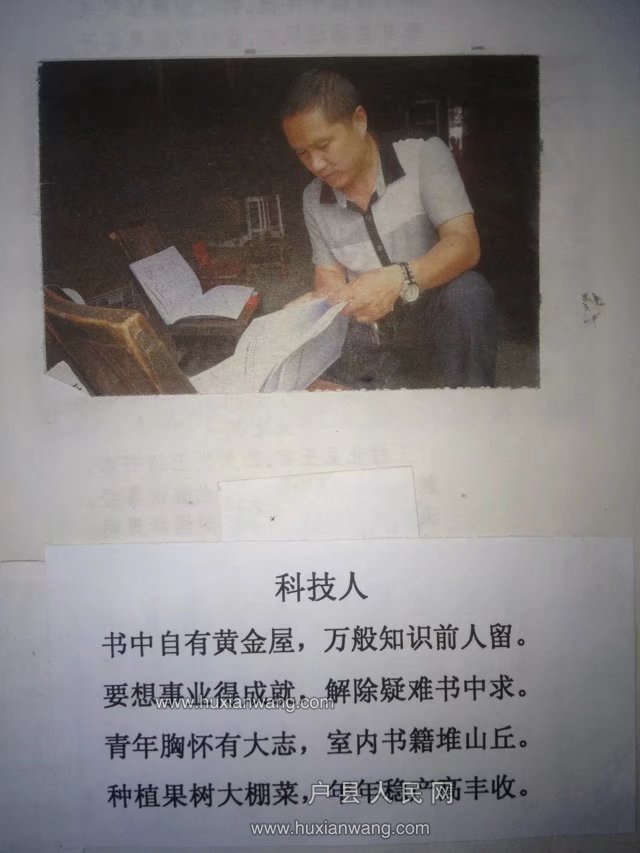 科技人
书中自有黄金屋，万般知识前人留。
要想事业得成就，解除疑难书中求。
www.huxianwang.com
青年胸怀有大志，室内书籍堆山丘。
种植果树大棚菜，年年稳产高丰收。
户县人民网
www.huxianwang.com